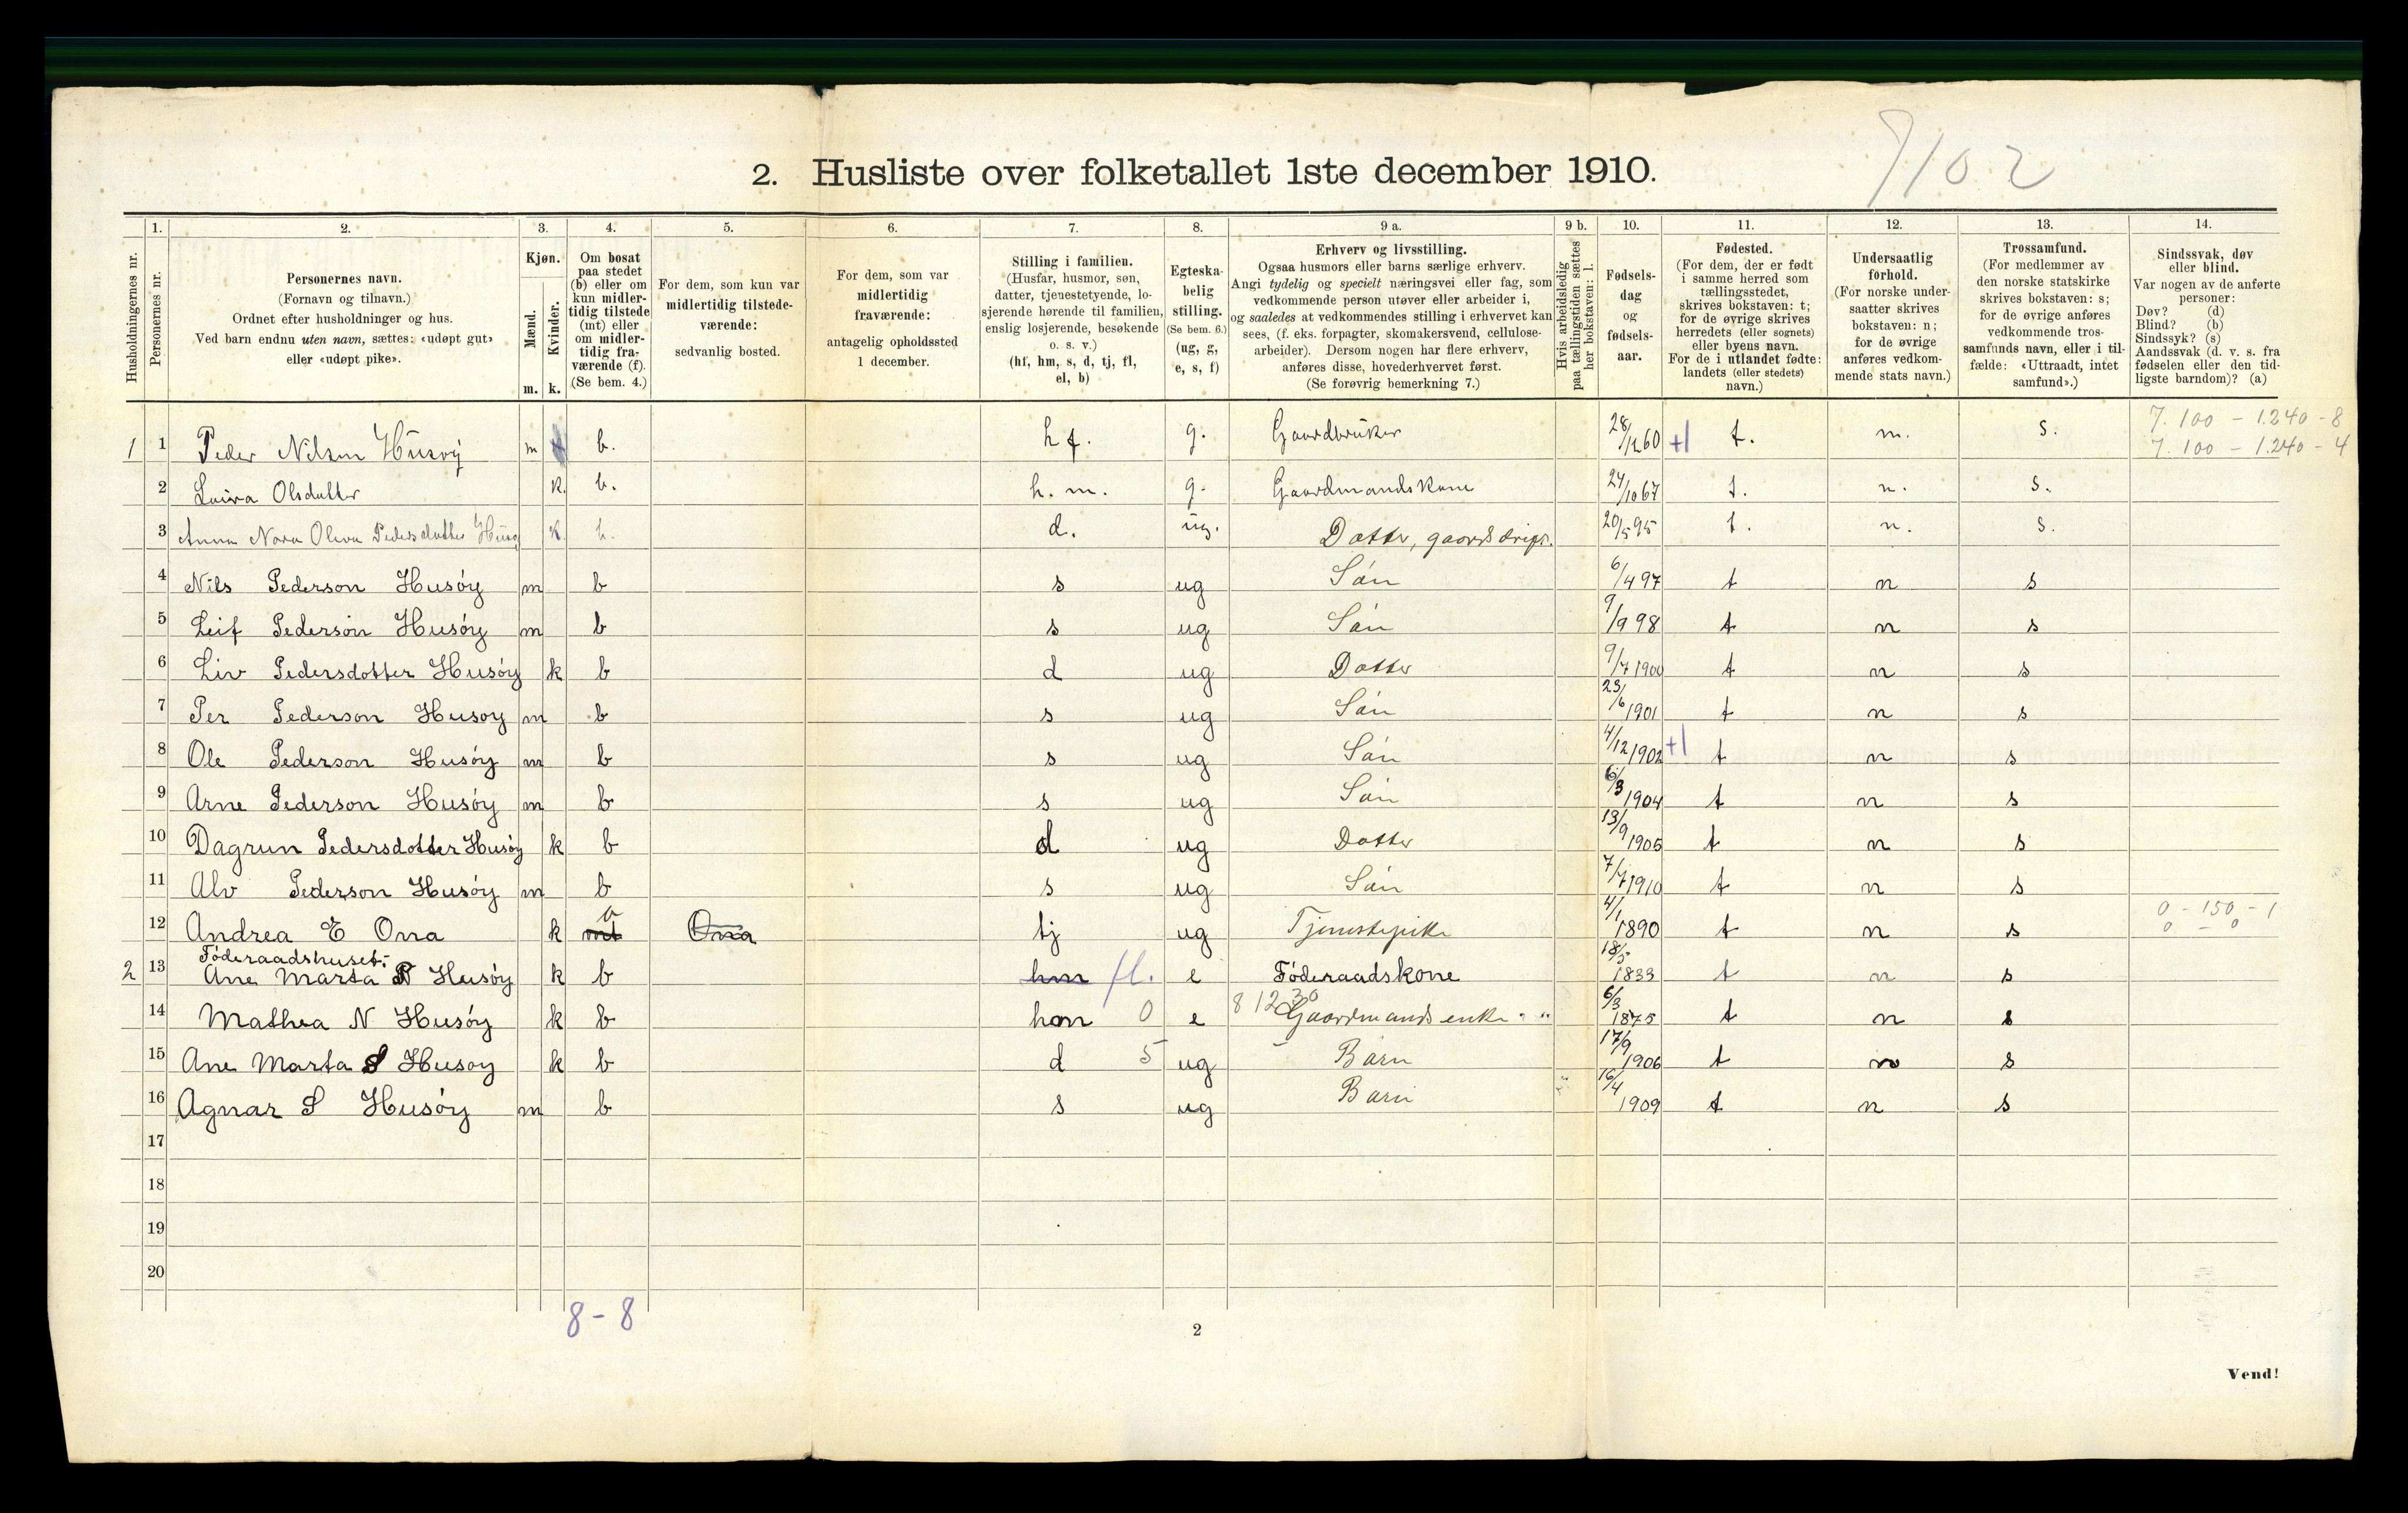 2. Husliste over folketallet 1ste december 1910.
7102
Husholdningernes nr.
1. Personernes nr.
2. Personernes navn.
(Fornavn og tilnavn.)
Ordnet efter husholdninger og hus.
Ved barn endnu uten navn, sættes: «udøpt gut»
eller «udøpt pike».
3. Kjøn.
Mænd. m.
Kvinder. k.
4. Om bosat
paa stedet
(b) eller om
kun midler-
tidig tilstede
(mt) eller
om midler-
tidig fra-
værende (f).
(Se bem. 4.)
5. For dem, som kun var
midlertidig tilstede-
værende:
sedvanlig bosted.
6. For dem, som var
midlertidig
fraværende:
antagelig opholdssted
1 december.
7. Stilling i familien.
(Husfar, husmor, søn,
datter, tjenestetyende, lo-
sjerende hørende til familien,
enslig losjerende, besøkende
o. s. v.)
(hf, hm, s, d, tj, fl,
el, b)
8. Egteska-
belig
stilling.
(Se bem. 6.)
(ug, g,
e, s, f)
9 a. Erhverv og livsstilling.
Ogsaa husmors eller barns særlige erhverv.
Angi tydelig og specielt næringsvei eller fag, som
vedkommende person utøver eller arbeider i,
og saaledes at vedkommendes stilling i erhvervet kan
sees, (f. eks. forpagter, skomakersvend, cellulose-
arbeider). Dersom nogen har flere erhverv,
anføres disse, hovederhvervet først.
(Se forøvrig bemerkning 7.)
9 b. Hvis arbeidsledig
paa tællingstiden sættes
her bokstaven: l.
10. Fødsels-
dag
og
fødsels-
aar.
11. Fødested.
(For dem, der er født
i samme herred som
tællingsstedet,
skrives bokstaven: t;
for de øvrige skrives
herredets (eller sognets)
eller byens navn.
For de i utlandet fødte:
landets (eller stedets)
navn.)
12. Undersaatlig
forhold.
(For norske under-
saatter skrives
bokstaven: n;
for de øvrige
anføres vedkom-
mende stats navn.)
13. Trossamfund.
(For medlemmer av
den norske statskirke
skrives bokstaven: s;
for de øvrige anføres
vedkommende tros-
samfunds navn, eller i til-
fælde: «Uttraadt, intet
samfund».)
14. Sindssvak, døv
eller blind.
Var nogen av de anførte
personer:
Døv? (d)
Blind? (b)
Sindssyk? (s)
Aandssvak (d. v. s. fra
fødselen eller den tid-
ligste barndom)? (a)
1 1 Peder Nilsen Husøy m b. hf. g. Gaardbruker 28/12 60 +1 t. n. s. 7.100 - 1.240 - 8
7.100 - 1.240 - 4
2 Lovisa Olsdatter k. b. h.m. g. Gaardmandskone 24/10 67 t. n. s.
3 Anna Nora Oleva Pedersdatter Husøy k b. d. ug. Datter, gaardsdrift. 20/5 95 t. n. s.
4 Nils Pederson Husøy m b s ug Søn 6/4 97 t n s
5 Leif Pederson Husøy m b s ug Søn 9/9 98 t n s
6 Liv Pedersdotter Husøy k b d ug Datter 9/7 1900 t n s
7 Per Pederson Husøy m b s ug Søn 23/6 1901 t n s
8 Ole Pederson Husøy m b s ug Søn 4/12 1902 +1 t n s
9 Arne Pederson Husøy m b s ug Søn 6/3 1904 t n s
10 Dagrun Pedersdotter Husøy k b d ug Datter 13/9 1906 t n s
11 Alv Pederson Husøy m b s ug Søn 7/7 1910 t n s
12 Andrea E Ona k mt b Ona tj ug Tjenestepike 4/1 1890 t n s 0 - 150 - 1
0 - 0
Föderaadshuset:
2 13 Ane Marta P Husøy k b hm fl. e Föderaadskone 18/5 1833 t n s
14 Mathea N Husøy k b hm 0 e 8 12 30 Gaardmandsenke " " 6/3 1875 t n s
15 Ane Marta S Husøy k b d 5 ug Barn 17/9 1906 t n s
16 Agnar S Husøy m b s ug Barn 16/4 1909 t n s
17
18
19
20
8 - 8
2
Vend!